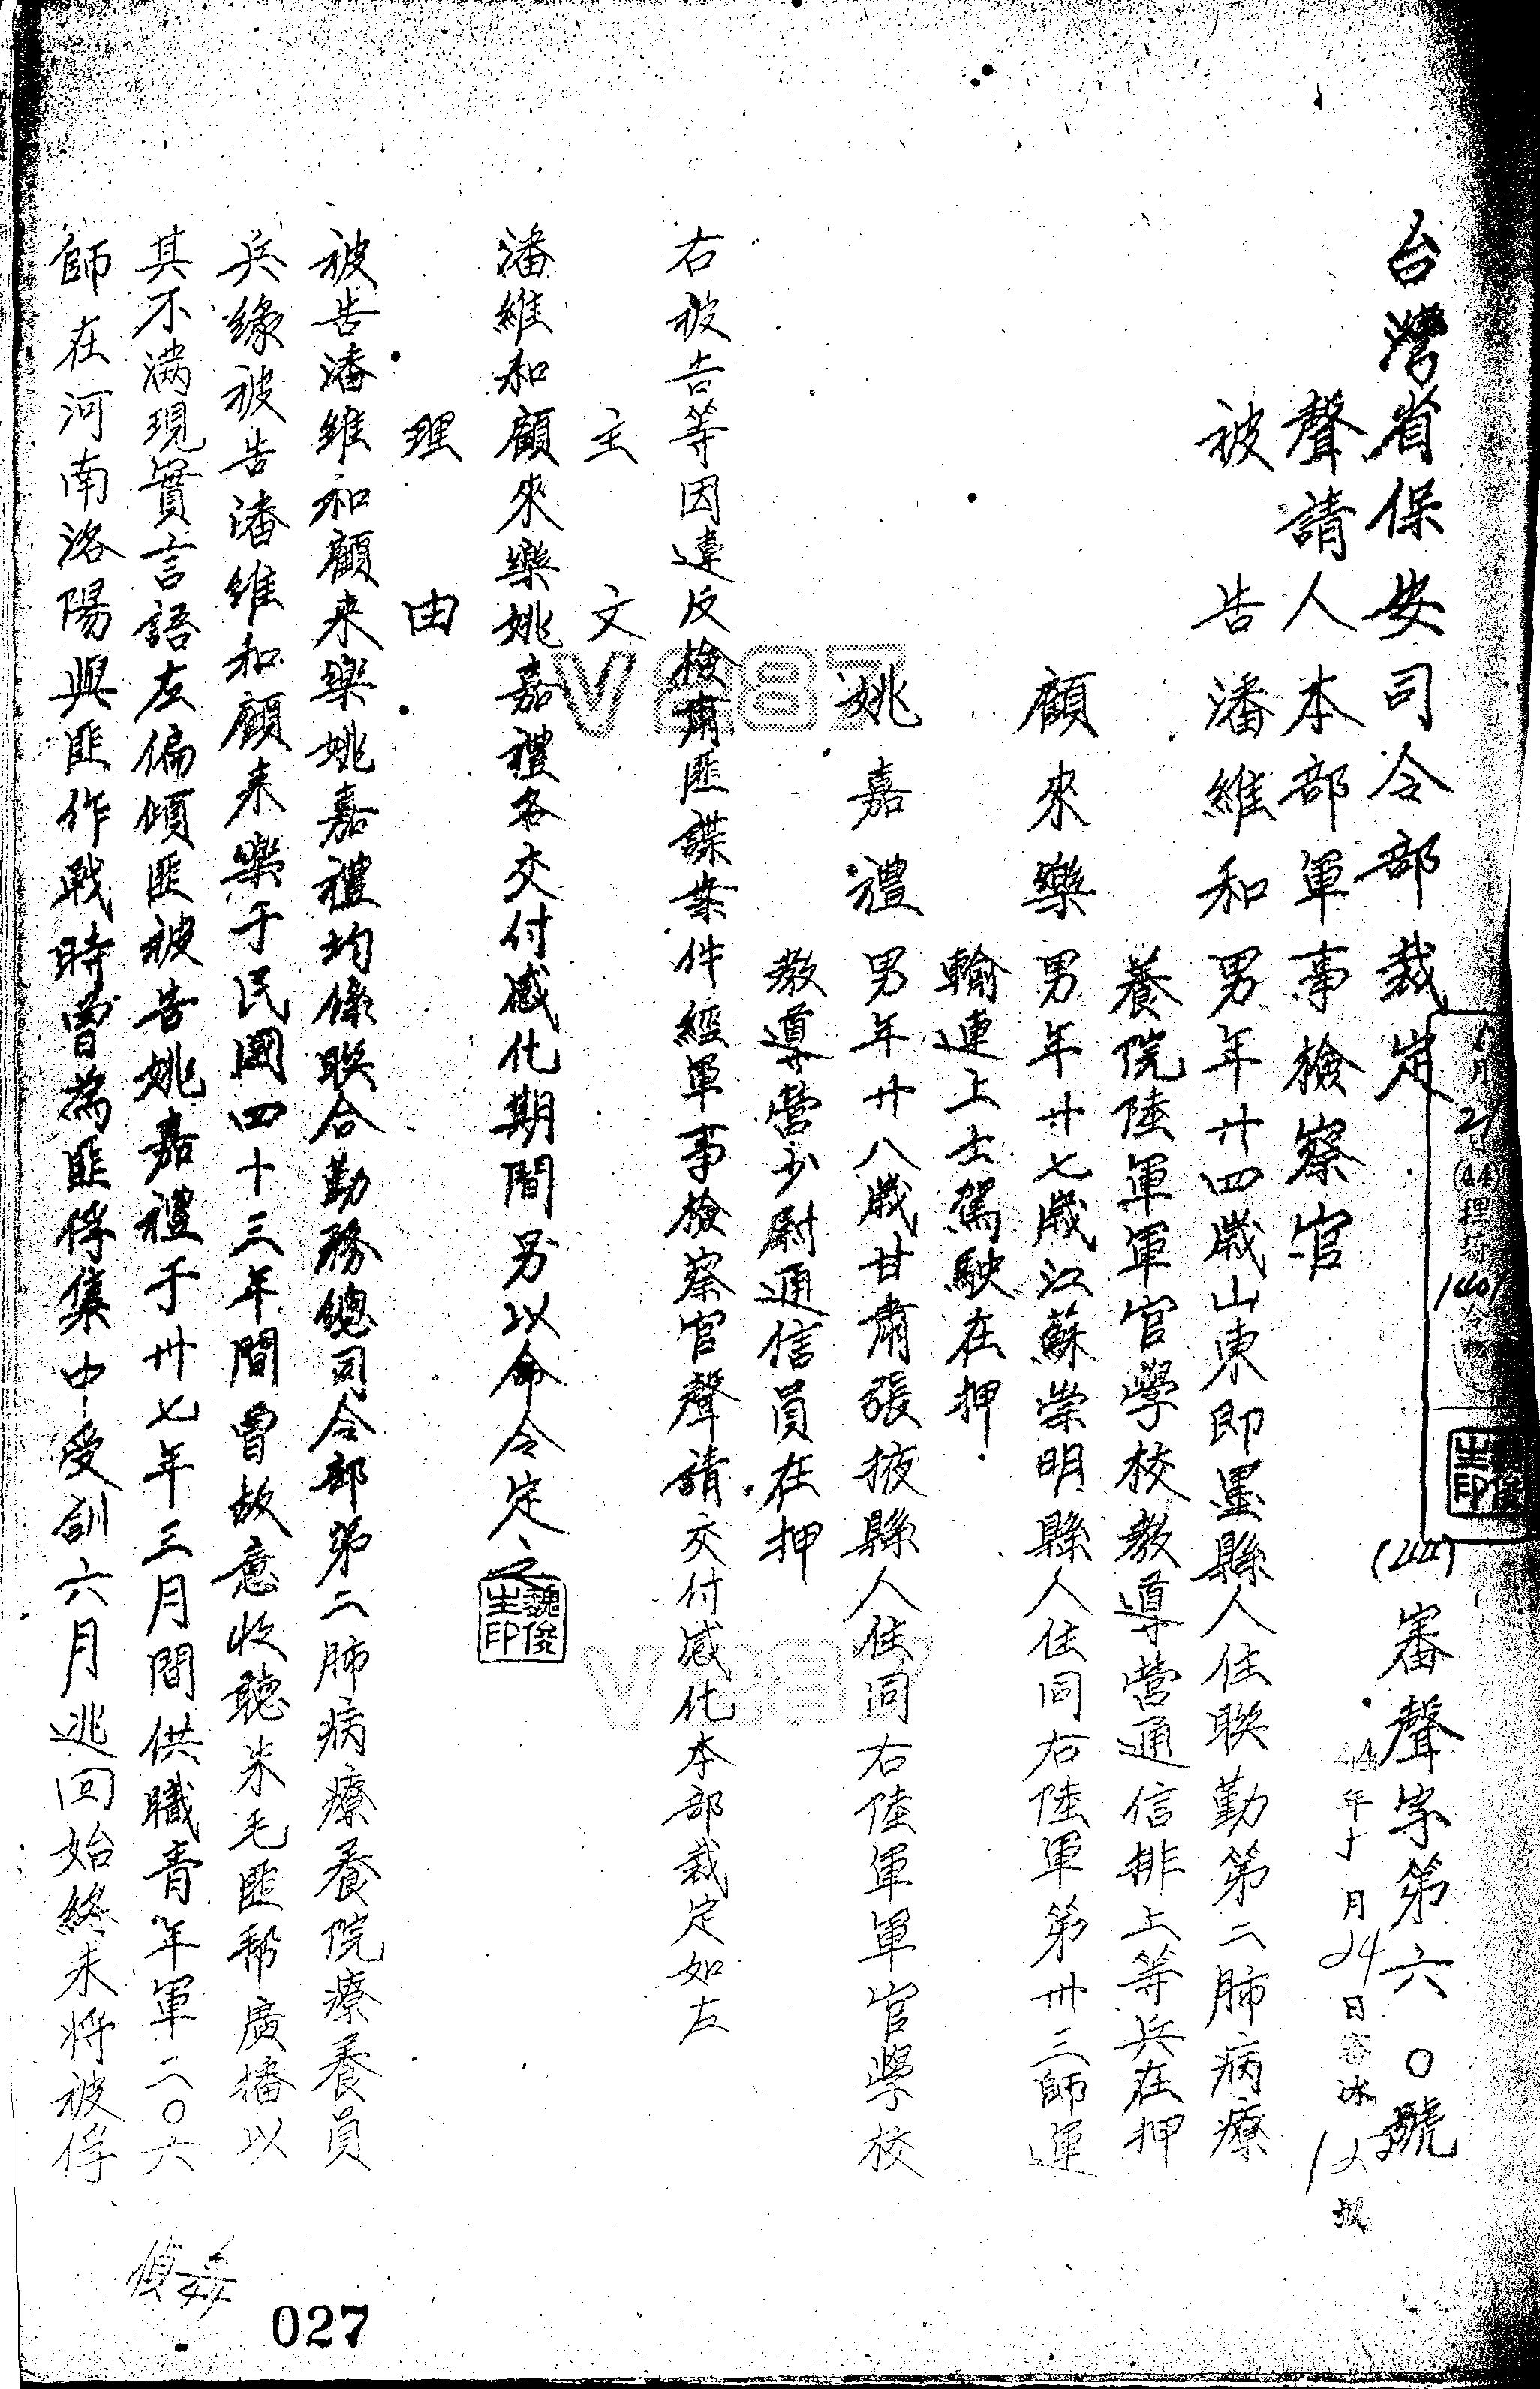 台灣省保安司令部裁定
(44)審聲字第六〇號
聲請人本部軍事檢察官
被告潘維和男年廿四歲山東即墨縣人住聯勤第二肺病療
養院陸軍軍官學校教導營通信排上等兵在押
顧來樂男年廿七歲江蘇崇明縣人住同右陸軍第卅三師運
輸連上士駕駛在押
姚嘉禮男年廿八歲甘肅張掖縣人住同右陸軍軍官學校
教導營少尉通信員在押
右被告等因違反檢肅匪諜案件經軍事檢察官聲請交付感化本部裁定如左
主文
潘維和顧來樂姚嘉禮各交付感化期間另以命令定之
魏俊生印
理由
被告潘維和顧来樂姚嘉禮均係聯合勤務總司令部第二肺病療養院療養員
兵緣被告潘維和顧来樂于民國四十三年間曾故意收聽朱毛匪幫廣播以
其不滿現實言語左偏傾匪被告姚嘉禮于卅七年三月間供職青年軍二〇六
師在河南洛陽與匪作戰時曾為匪俘集中受訓六月逃回始終未將被俘
偵
027
V287
V287